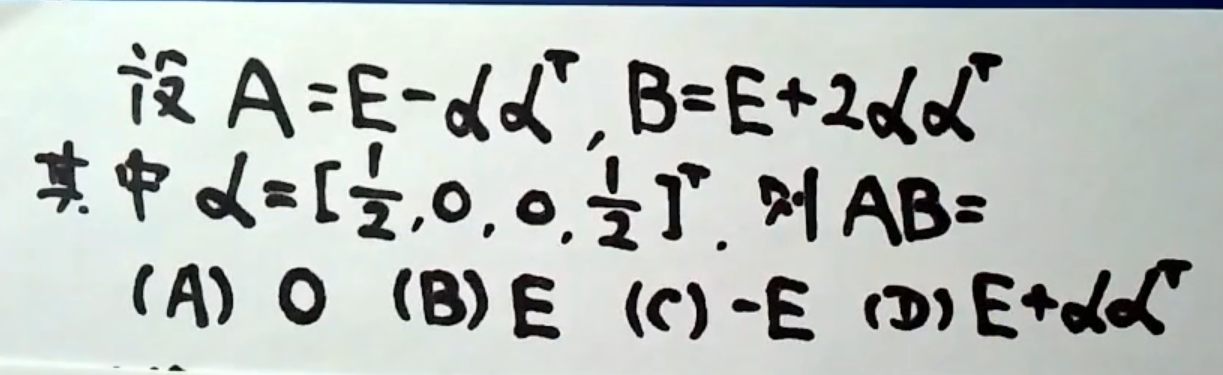 设 A=E-αα^T, B=E+2αα^T
其中 α=[1/2,0,0,1/2]^T. 则 AB=
(A) 0 (B) E (C) -E (D) E+αα^T